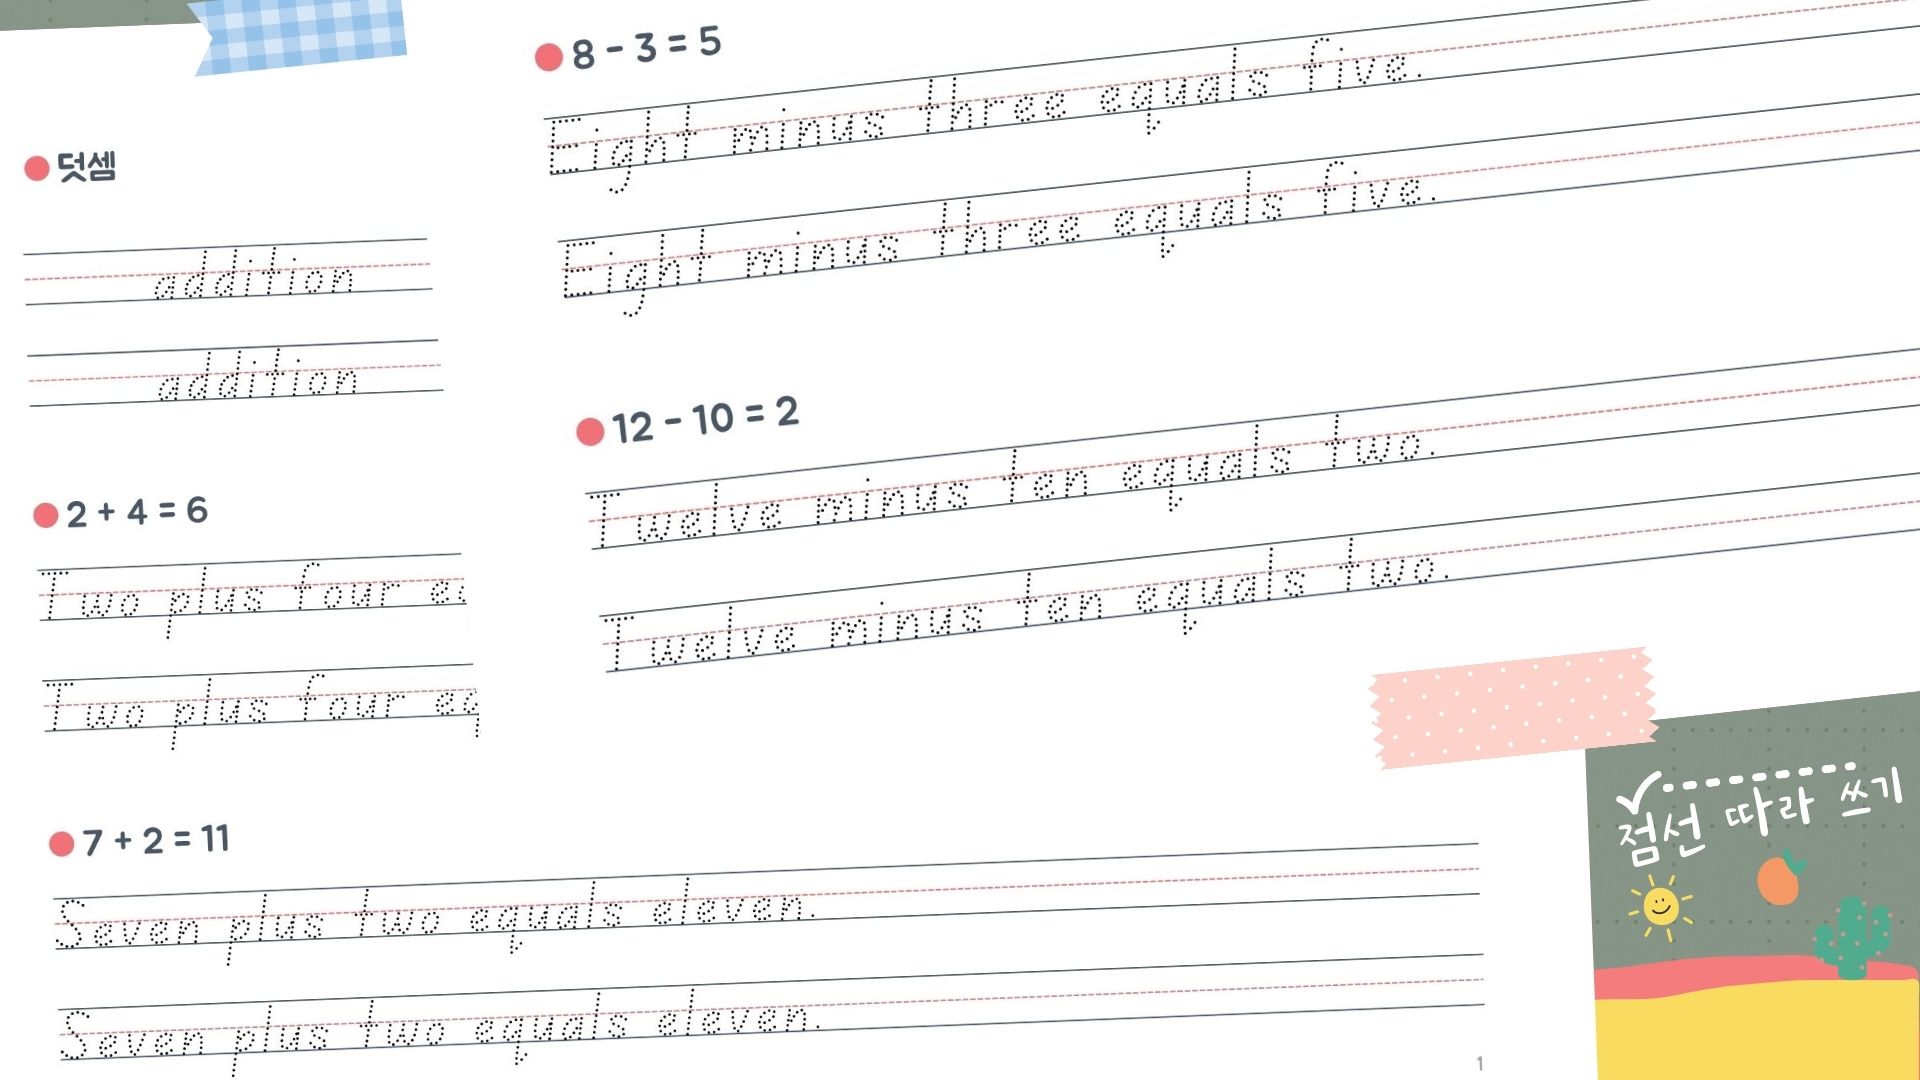 덧셈
addition
addition
2 + 4 = 6
Two plus four
Two plus four
7 + 2 = 11
Seven plus two equals eleven.
Seven plus two equals eleven.
1
8 - 3 = 5
Eight minus three equals five.
Eight minus three equals five.
12 - 10 = 2
Twelve minus ten equals two.
Twelve minus ten equals two.
점선 따라 쓰기